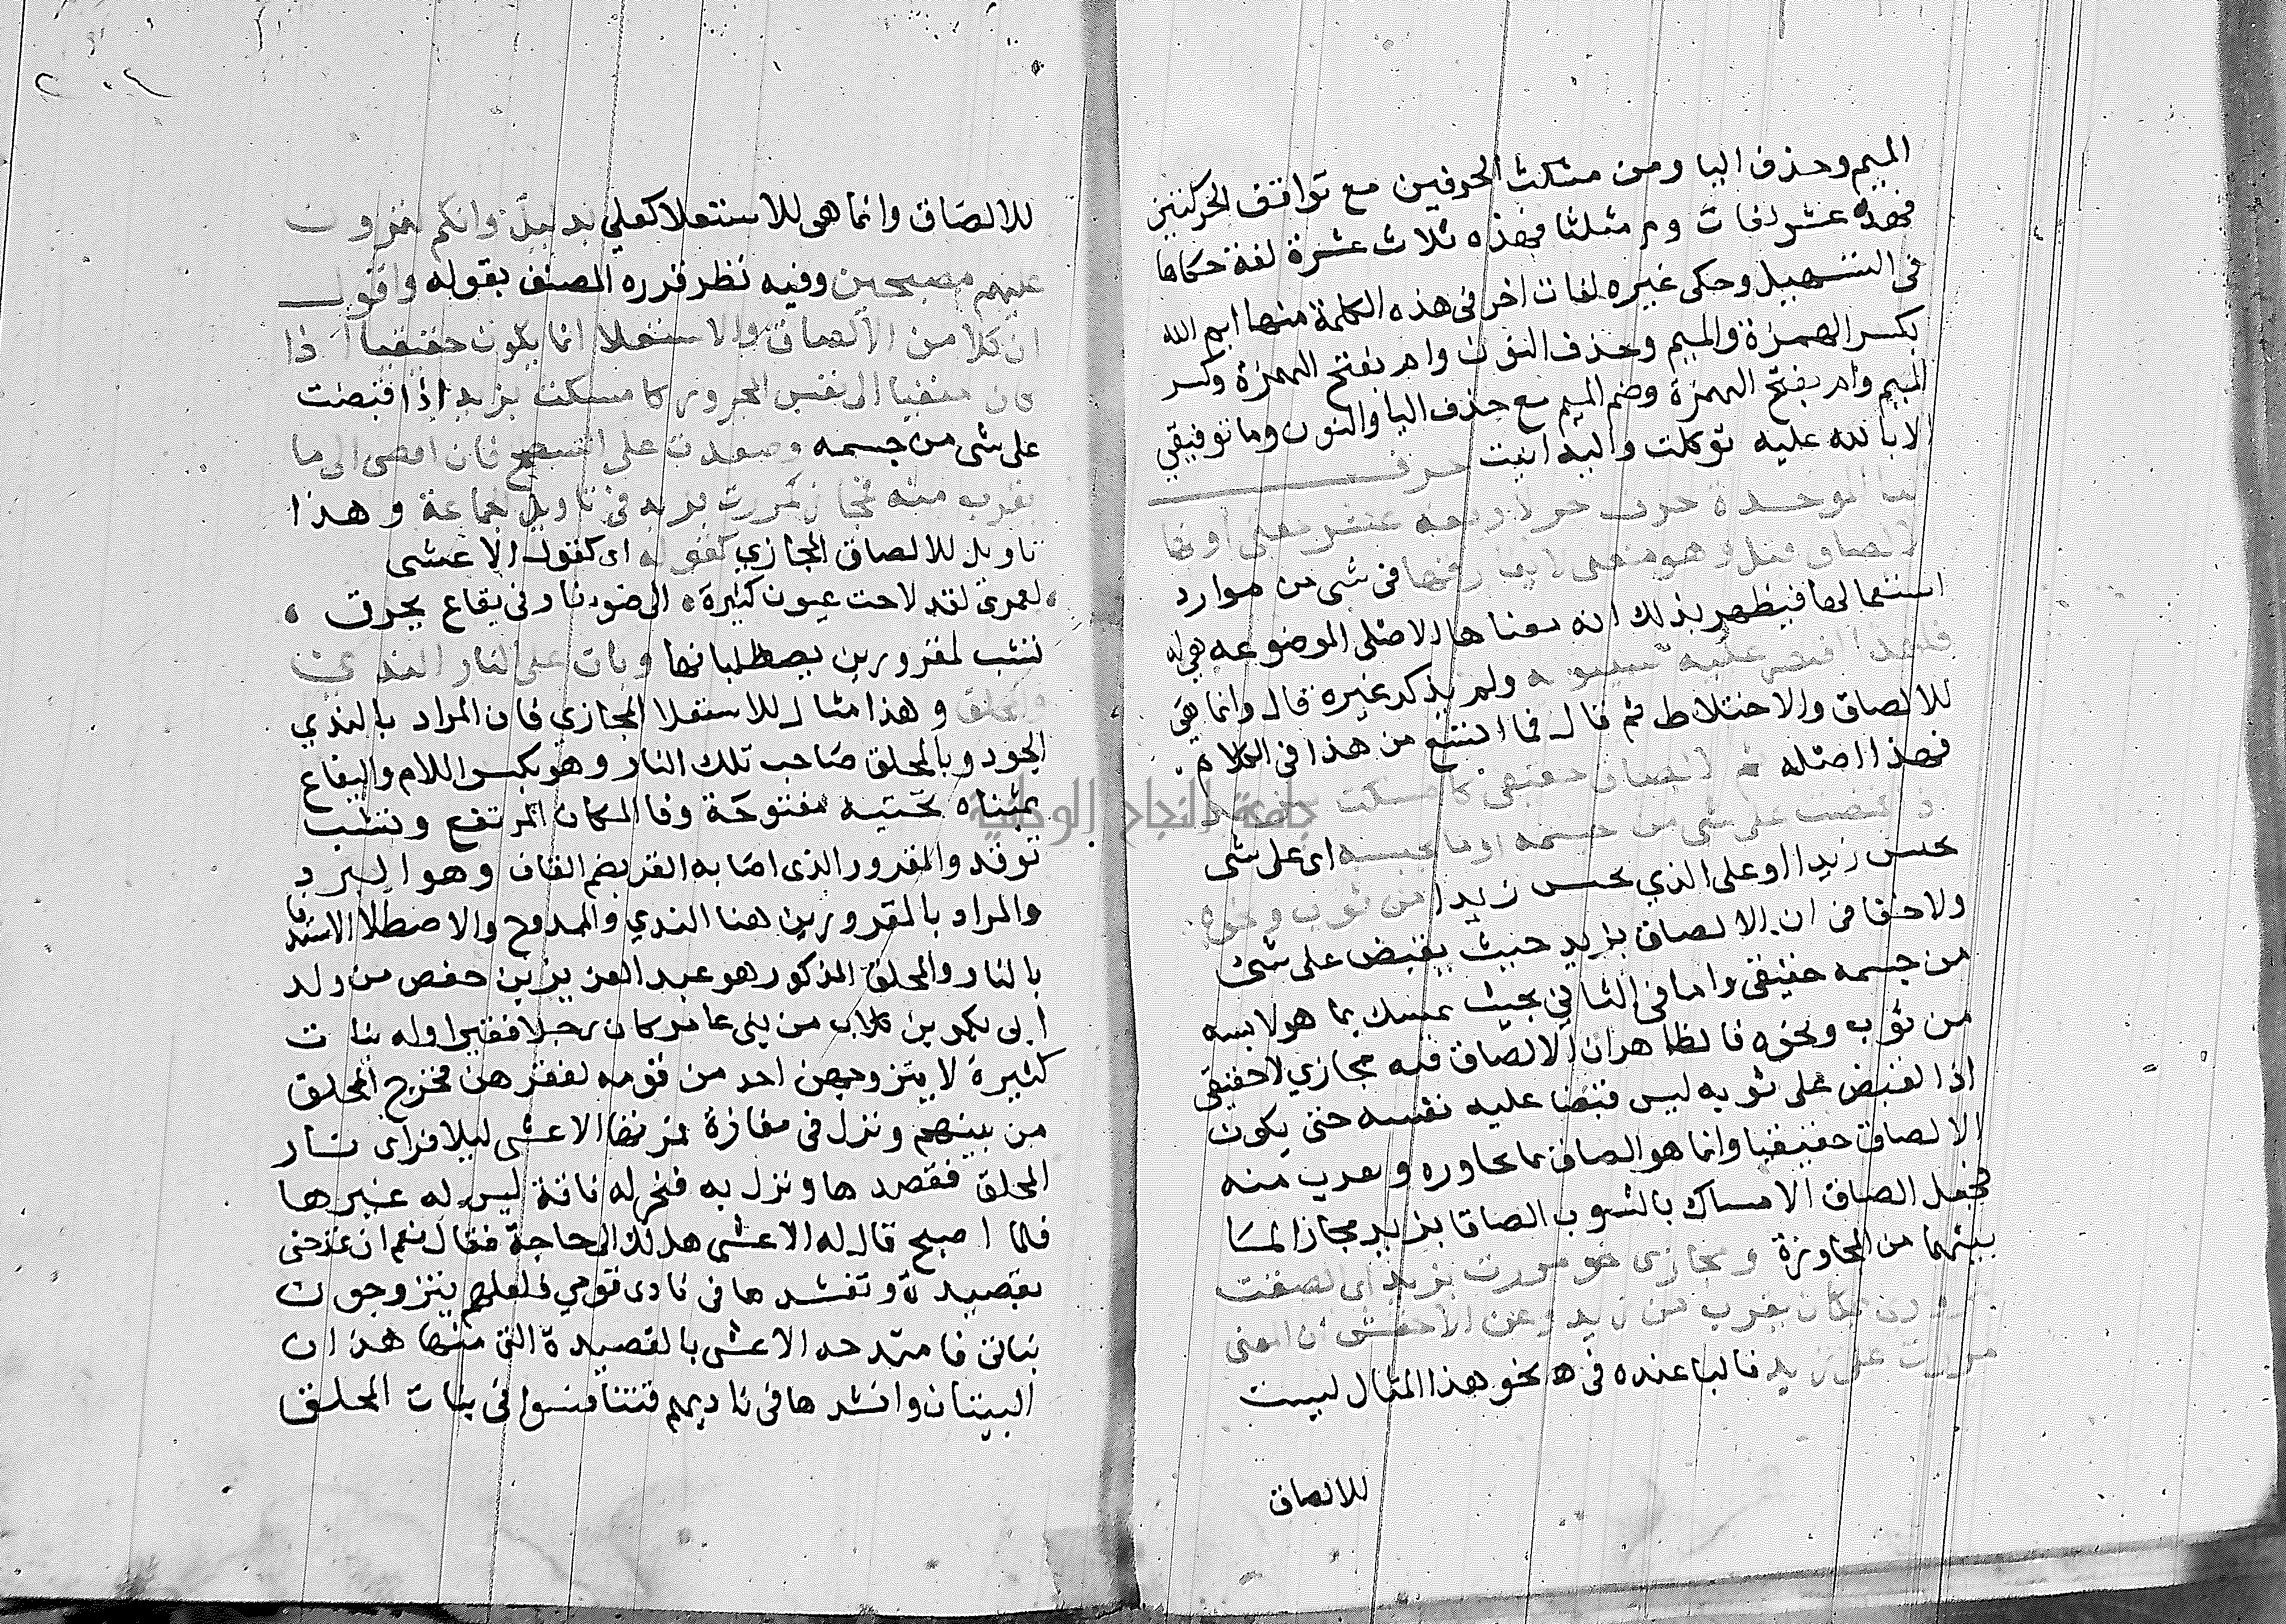 الميم وحذف اليا ومن مثلث الحرفين مع توافق الحركتين
فهذه عشر لغات وم مثلثا فهذه ثلاث عشرة لغة حكاها
فى التسهيل وحكى غيره لغات اخر فى هذه الكلمة منها ايم الله
بكسر الهمزة والميم وحذف النون وام بفتح الهمزة وكسر
الميم وام بفتح الهمزة وضم الميم مع حذف اليا والنون وما توفيقي
الا بالله عليه توكلت واليه انيب حرف
البا الموحدة حرف جر لاربعة عشر معنى اولها
الالصاق قيل وهو معنى لا يفارقها فى شى من موارد
استعمالها فيظهر بذلك انه معناها الاصلى الموضوعه هي له
فلهذا اقتصر عليه سيبويه ولم يذكر غيره قال وانما هي
للالصاق والاختلاط ثم قال فما اتسع من هذا فى الكلام
فهذا اصله ثم الالصاق حقيقى كامسكت بزيد
اذا قبضت على شى من جسمه او ما يحبسه اى على شى
يحبس زيدا او على الذي يحبس زيدا من ثوب ونحوه
ولا خفا فى ان الالصاق بزيد حيث يقبض على شى
من جسمه حقيقى واما فى الثاني بحيث يمسك بما هو لابسه
من ثوب ونحوه فالظاهر ان الالصاق فيه مجازي لا حقيقى
اذ القبض على ثوبه ليس قبضا عليه نفسه حتى يكون
الالصاق حقيقيا وانما هو الصاق بما يجاوره ويقرب منه
فجعل الصاق الامساك بالثوب الصاقا بزيد مجازا لما
بينهما من المجاورة ومجازى نحو مررت بزيد اى الصقت
مرورى بمكان يقرب من زيد وعن الاخفش ان المعنى
مررت على زيد فالبا عنده فى نحو هذا المثال ليست
للالصاق
٢٠٤
للالصاق وانما هى للاستعلا كعلي بدليل وانكم لتمرون
عليهم مصبحين وفيه نظر قرره المصنف بقوله واقول
ان كلا من الالصاق والاستعلا انما يكون حقيقيا اذا
كان مفضيا الى نفس المجرور كامسكت بزيد اذا قبضت
على شى من جسمه وصعدت على السطح فان افضى الى ما
يقرب منه فمجاز كمررت بزيد فى تاويل الجماعة وهذا
تاويل للالصاق المجازي كقوله اى كقول الاعشى
لعمرى لقد لاحت عيون كثيرة الى ضو نار فى يفاع يحرق
تشب لمقرورين يصطليانها وبات على النار الندى
والمحلق وهذا مثال للاستعلا المجازى فان المراد بالندي
الجود وبالمحلق صاحب تلك النار وهو بكسر اللام واليفاع
بمثناه تحتيه مفتوحة وفا المكان المرتفع وتشب
توقد والمقرور الذى اصابه القر بضم القاف وهو البرد
والمراد بالمقرورين هنا الندي والممدوح والاصطلا الاستدفا
بالنار والمحلق المذكور هو عبد العزيز بن حفص من ولد
ابى بكر بن كلاب من بنى عامر كان رجلا فقيرا وله بنات
كثيرة لا يتزوجهن احد من قومه لفقرهن فخرج المحلق
من بينهم ونزل فى مفازة فمر بها الاعشى ليلا فراى نار
المحلق فقصدها ونزل به فنحر له ناقة ليس له غيرها
فلما اصبح قال له الاعشى هل لك الى حاجة فقال نعم ان تمدحنى
بقصيدة وتنشدها فى نادى قومي فلعلهم يتزوجون
بناتى فامتدحه الاعشى بالقصيدة التى منها هذان
البيتان وانشدها فى ناديهم فتنافسوا فى بنات المحلق